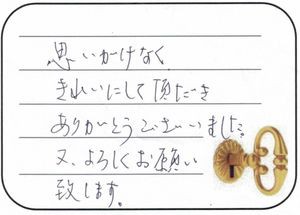 思いがけなく
きれいにして頂だき
ありがとうございました。
又、よろしくお願い
致します。